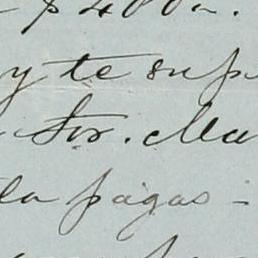 $400.
y te sup
Sor. Ma
la pagas